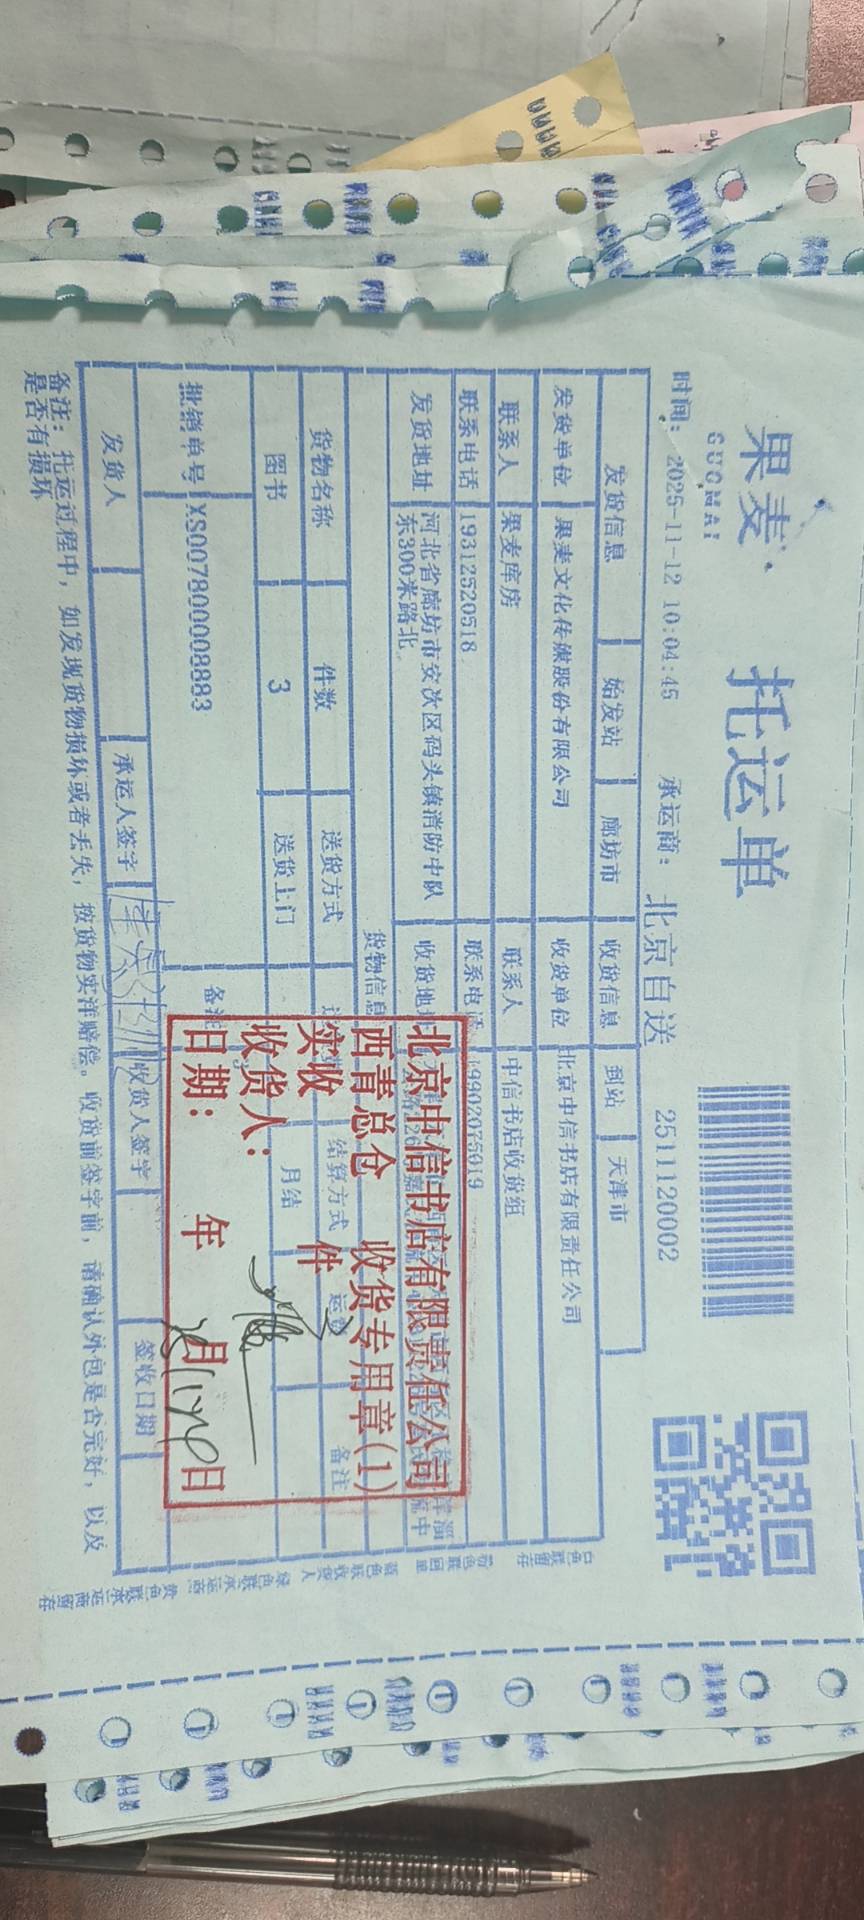 果麦
GUOMAI
托运单
2511120002
时间: 2025-11-12 10:04:45 承运商: 北京自送
发货信息 始发站 廊坊市 收货信息 到站 天津市
发货单位 果麦文化传媒股份有限公司 收货单位 北京中信书店有限责任公司
联系人 果麦库房 联系人 中信书店收货组
联系电话 19312520518 联系电话 19902075019
发货地址 河北省廊坊市安次区码头镇消防中队东300米路北 收货地址
货物信息
货物名称 件数 送货方式 结算方式 运费 备注
图书 3 送货上门 月结
批销单号 XS007800008883 备注
发货人 承运人签字 收货人签字 签收日期
备注: 托运过程中, 如发现货物损坏或者丢失, 按货物实洋赔偿。收货前签字前, 请确认外包是否完好, 以及
是否有损坏
北京中信书店有限责任公司
西青总仓 收货专用章(1)
实收 件
收货人:
日期: 年 月 日
白色联留存 粉色联回单 蓝色联收货人 绿色联承运商 黄色联承运商留存